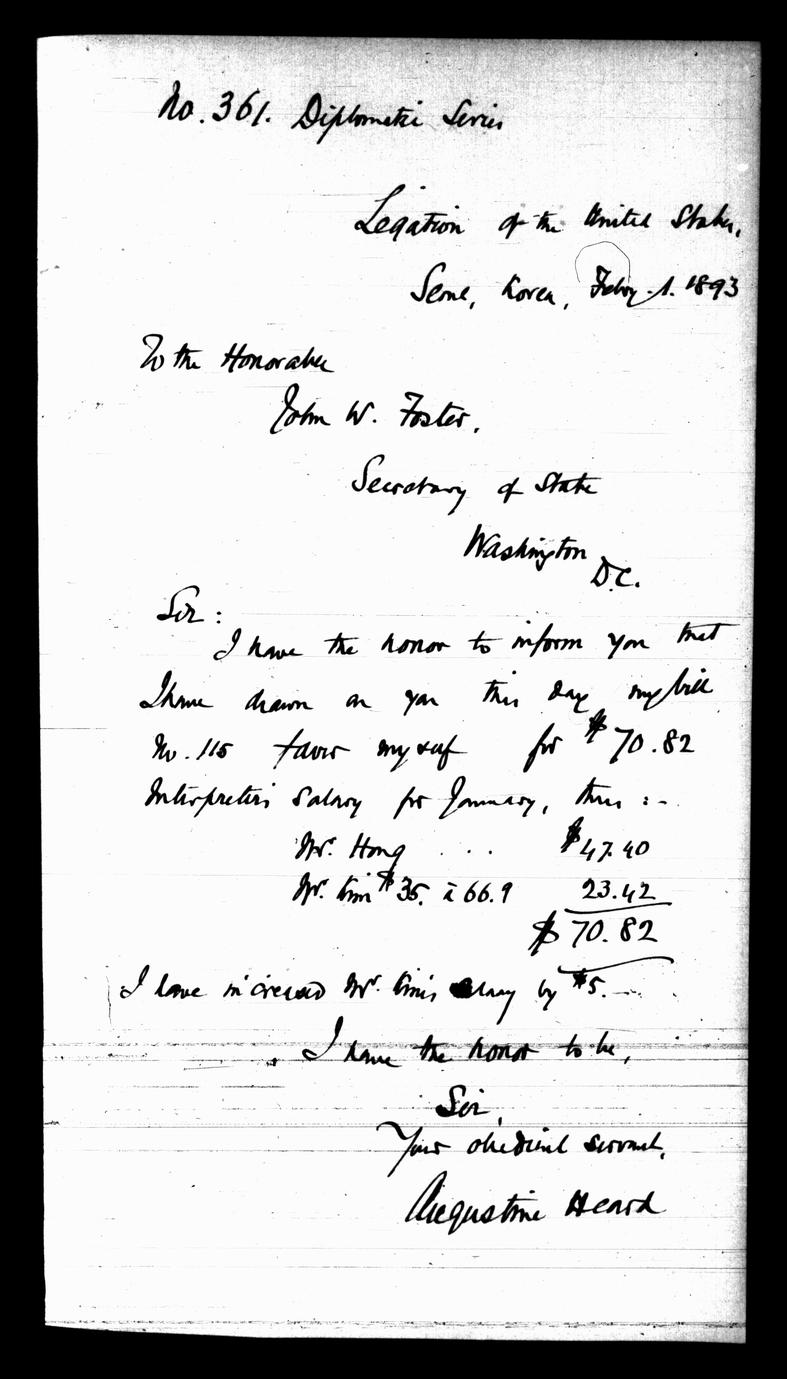 No. 361. Diplomatic Series
Legation of the United States,
Seoul, Korea, Feby. 1. 1893
To the Honorable
John W. Foster,
Secretary of State
Washington
D.C.
Sir:
I have the honor to inform you that
I have drawn on you this day my bill
No. 115 favor myself for $70.82
Interpreters Salary for January, thus :-
Mr. Hong ... $47.40
Mr. Kim $35. à 66.9 23.42
$70.82
I have increased Mr. Kim's salary by $5.
I have the honor to be,
Sir,
Your obedient servant,
Augustine Heard